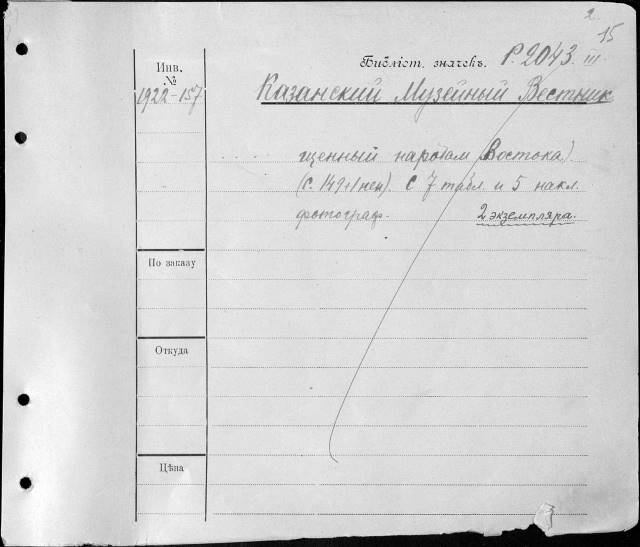 2.
15
Библіот. значекъ. P. 2043. III.
Инв.
№
1922-157
Казанский Музейный Вестник
щенный народам Востока)
(с. 149+1 нен). с 7 табл. и 5 накл.
фотограф. 2 экземпляра.
По заказу
Откуда
Цѣна